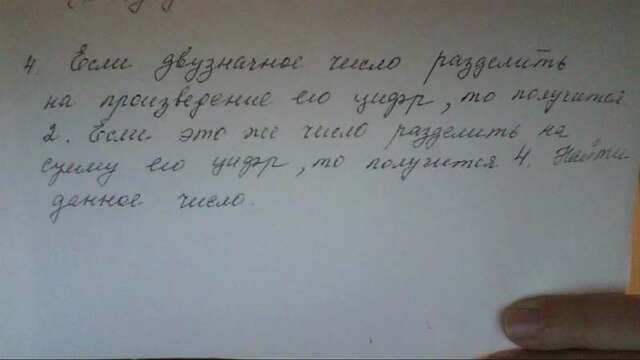 4. Если двузначное число разделить
на произведение его цифр, то получится
2. Если это же число разделить на
сумму его цифр, то получится 4. Найти
данное число.